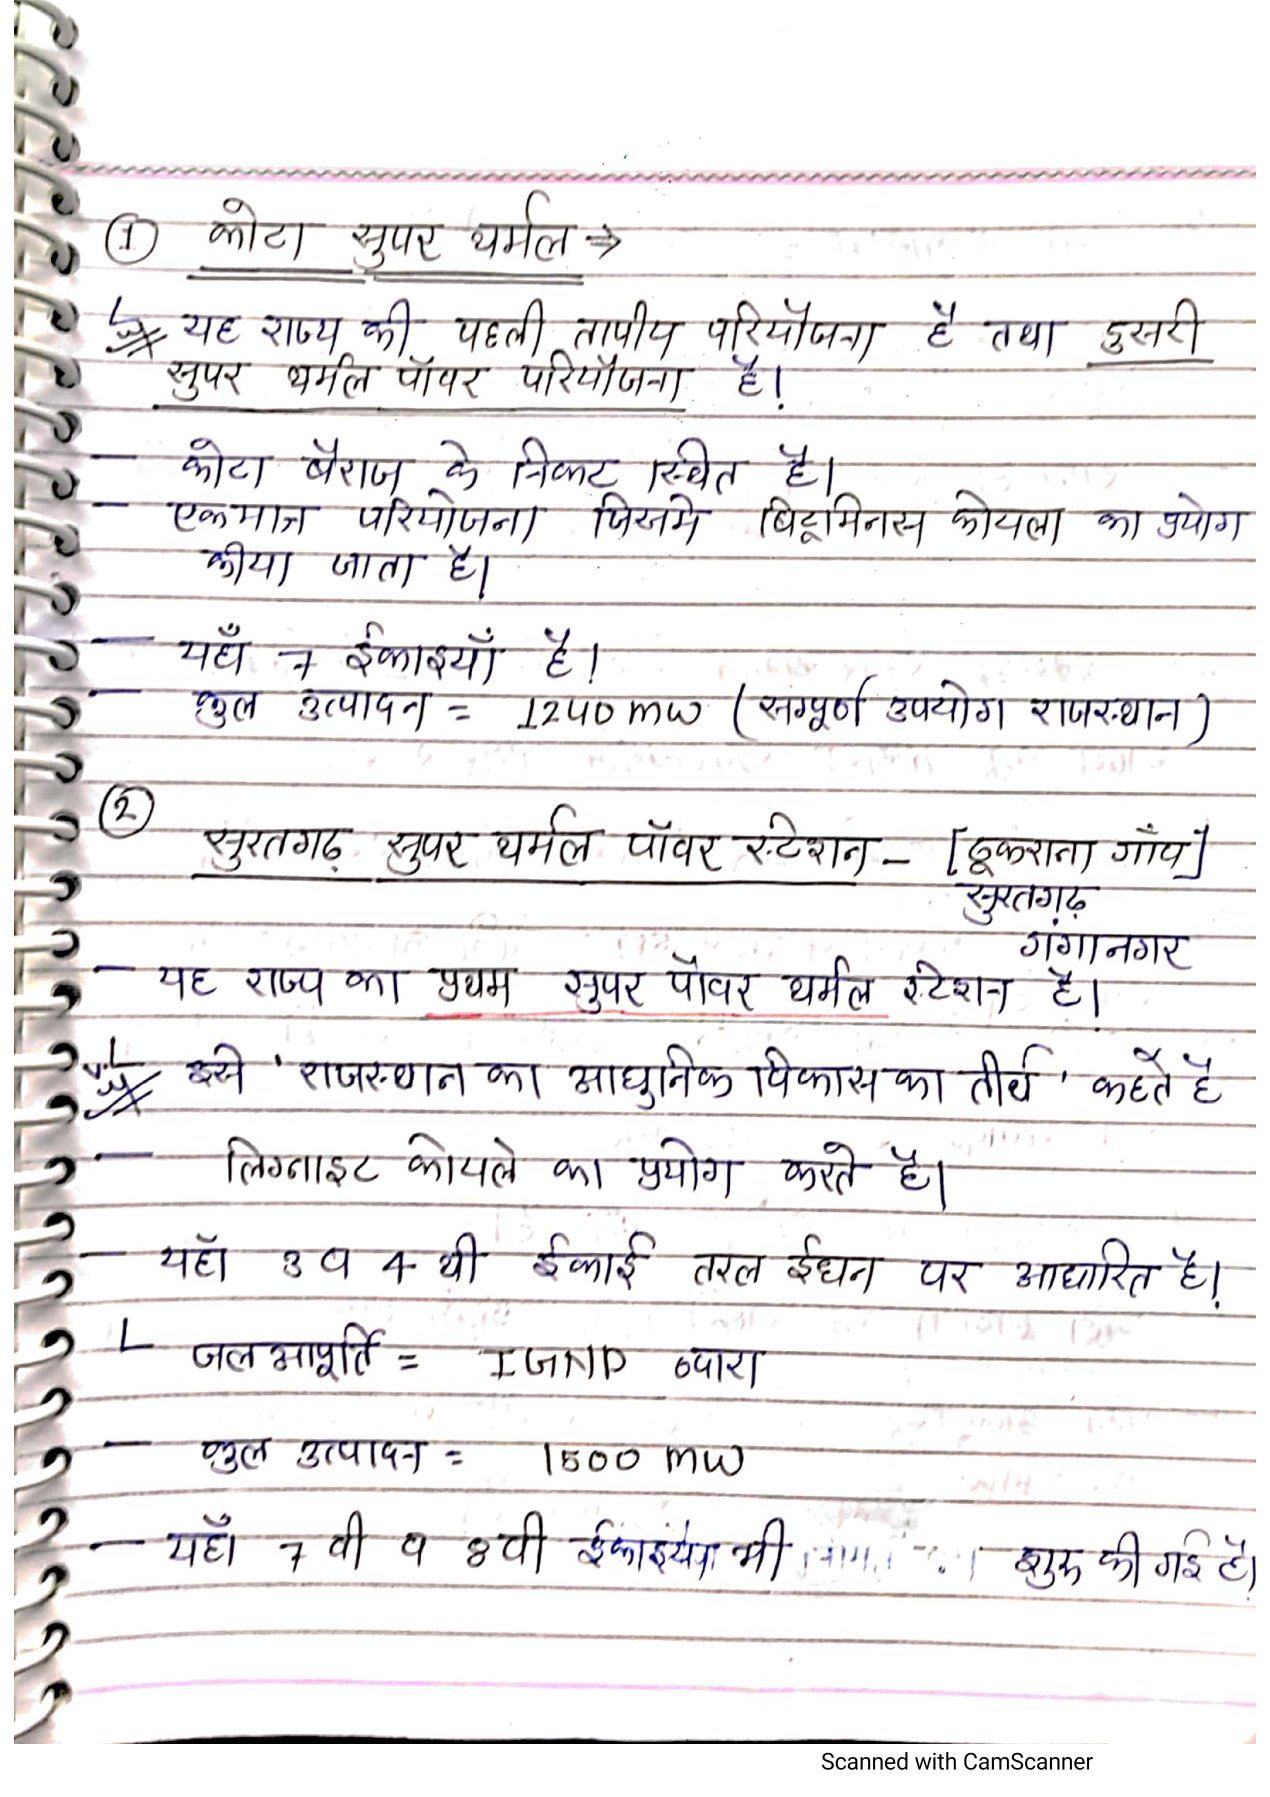 ① कोटा सुपर थर्मल →
यह राज्य की पहली तापीय परियौजना है तथा दुसरी
सुपर थर्मल पॉवर परियौजना है।
— कोटा बैराज के निकट स्थित है।
— एकमात्र परियोजना जिसमे बिटूमिनस कोयला का प्रयोग
कीया जाता है।
— यहाँ 7 ईकाइयाँ है।
— कुल उत्पादन = 1240 mw (सम्पूर्ण उपयोग राजस्थान)
②
सुरतगढ़ सुपर थर्मल पॉवर स्टेशन – [ठूकराना गाँव]
सुरतगढ़
गंगानगर
— यह राज्य का प्रथम सुपर पॉवर थर्मल स्टेशन है।
इसे 'राजस्थान का आधुनिक विकास का तीर्थ' कहते है
— लिग्नाइट कोयले का प्रयोग करते है।
— यहाँ 3 व 4 थी ईकाई तरल ईधन पर आधारित है।
L जल आपूर्ति = IGNP व्दारा
— कुल उत्पादन = 1500 mw
— यहाँ 7 वी व 8 वी भी शुरू की गई है।
Scanned with CamScanner